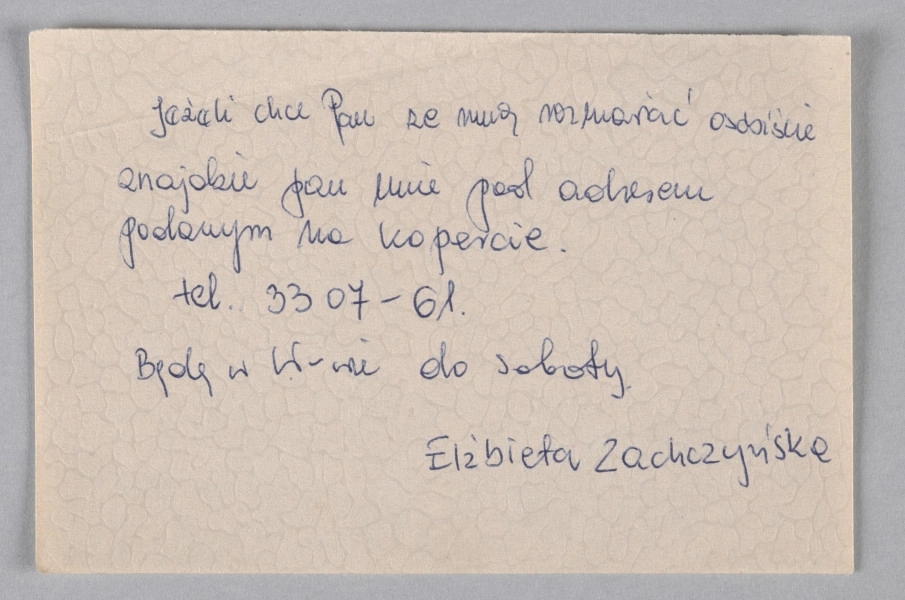 Jeżeli chce Pan ze mną rozmawiać osobiście
znajdzie pan mnie pod adresem
podanym na kopercie.
tel. 33 07-61.
Będę w W-wie do soboty.
Elżbieta Zachczyńska